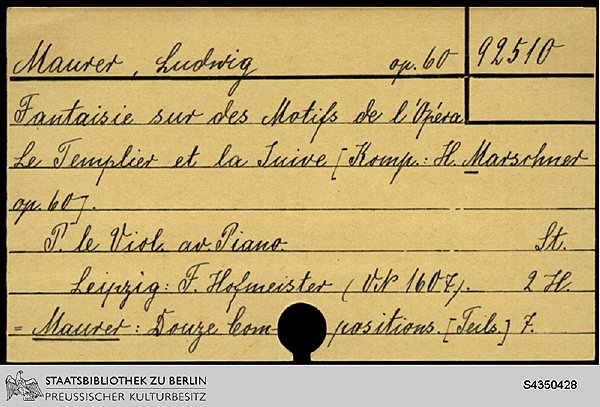 Maurer, Ludwig op. 60 92510
Fantaisie sur des Motifs de l'Opéra
Le Templier et la Juive [Komp.: H. Marschner
op. 60].
P. le Viol. av Piano. St.
Leipzig: F. Hofmeister (VN 1607). 2 H.
= Maurer: Douze Compositions. [Teils.] 7.
STAATSBIBLIOTHEK ZU BERLIN
PREUSSISCHER KULTURBESITZ
S4350428